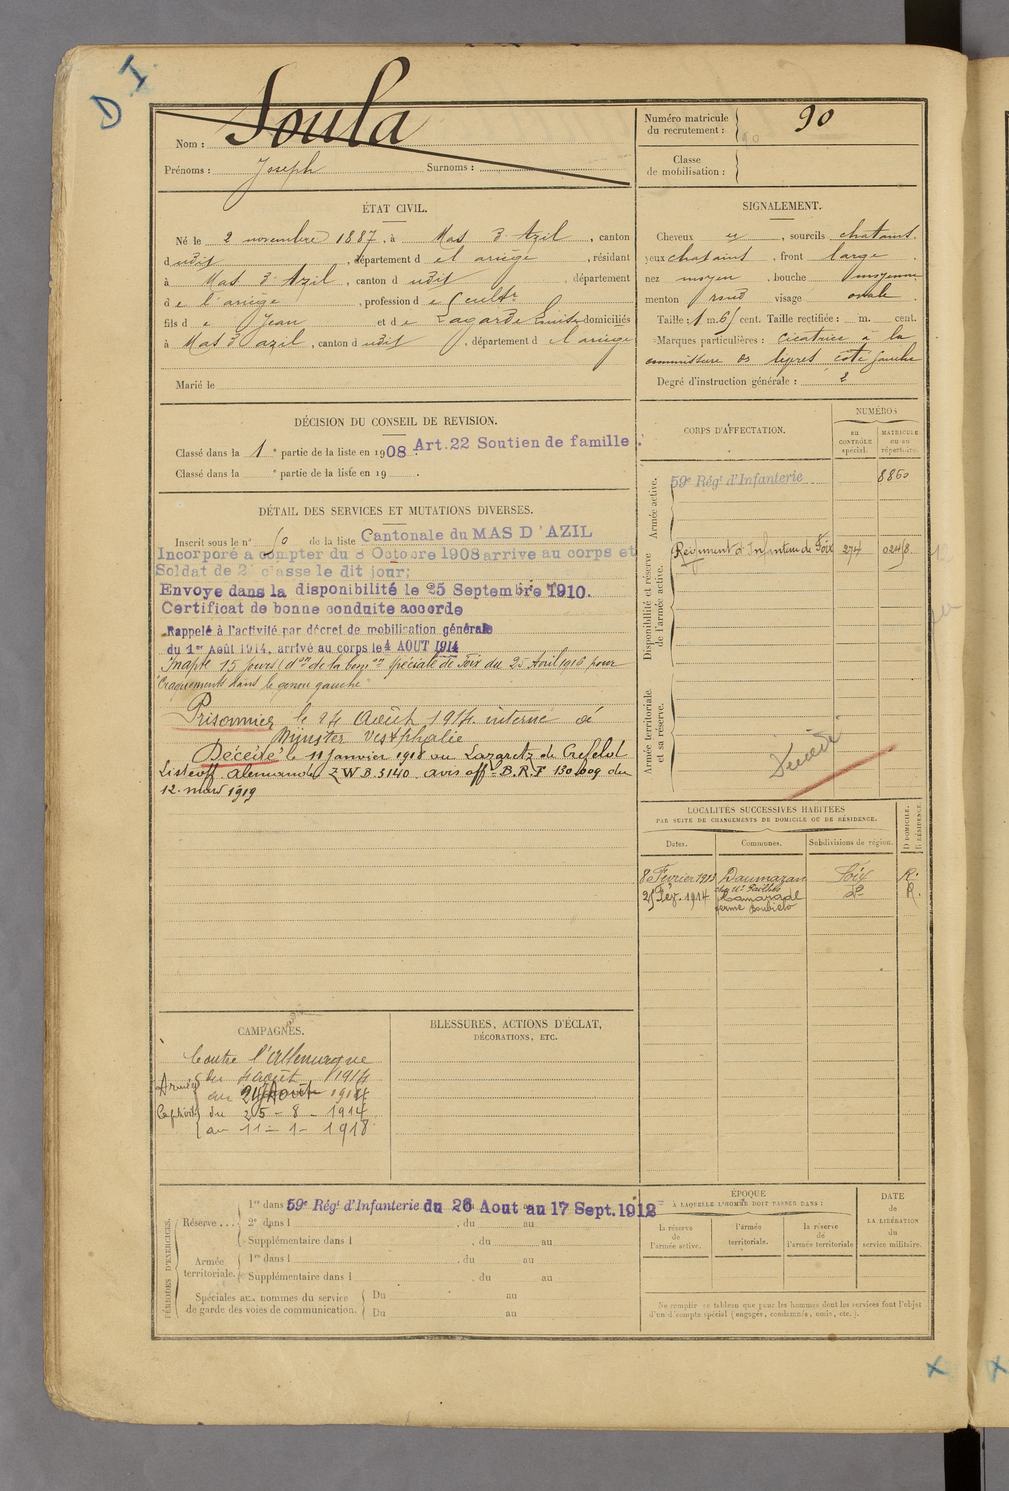 D I
Nom : Soula
Prénoms : Joseph Surnoms :
Numéro matricule du recrutement : 90
Classe de mobilisation :
ÉTAT CIVIL.
Né le 2 novembre 1887, à Mas d'Azil, canton
dudit, département de l'ariège, résidant
à Mas d'Azil, canton dudit, département
de l'ariège, profession de Cultr
fils de Jean et de Lagarde Louise domiciliés
à Mas d'azil, canton dudit, département de l'ariege
Marié le
SIGNALEMENT.
Cheveux, sourcils chatains.
yeux chatains, front large.
nez moyen, bouche moyenne
menton rond visage ovale.
Taille : 1 m. 61 cent. Taille rectifiée : m. cent.
Marques particulières : cicatrice à la
commissure des lèpres coté gauche
Degré d'instruction générale : 2
DÉCISION DU CONSEIL DE REVISION.
Classé dans la 1e partie de la liste en 1908. Art.22 Soutien de famille.
Classé dans la e partie de la liste en 19 .
DÉTAIL DES SERVICES ET MUTATIONS DIVERSES.
Inscrit sous le n° 50 de la liste Cantonale du MAS D'AZIL
Incorporé a compter du 8 Octobre 1908 arrive au corps et
Soldat de 2e classe le dit jour;
Envoye dans la disponibilité le 25 Septembre 1910.
Certificat de bonne conduite accorde
Rappelé à l'activité par décret de mobilisation générale
du 1er Août 1914, arrivé au corps le 4 AOUT 1914
Inapte 15 jours (don de la Comon spéciale de Foix du 25 Avril 1916 pour
"Craquements dans le genou gauche"
Prisonnier le 24 Août 1914 interné à
Münster Vestphalie
Décédé le 11 Janvier 1918 au Lazaretz de Crefeld
Liste off. alemande Z W B. 5140. avis offel B.R.F 130.009 du
12. mars 1919
CORPS D'AFFECTATION.
NUMÉROS
au CONTRÔLE spécial.
MATRICULE ou au répertoire.
Armée active.
59e Régt d'Infanterie 8860
Disponibilité et réserve de l'armée active.
Régiment d'Infanterie de Foix 274 02418
Armée territoriale et sa réserve.
Décédé
LOCALITÉS SUCCESSIVES HABITÉES
PAR SUITE DE CHANGEMENTS DE DOMICILE OU DE RÉSIDENCE.
Dates. Communes. Subdivisions de région. D DOMICILE. R RÉSIDENCE.
8 Février 1913 Daumazan Foix R.
21 Fév. 1914 Camarade do R.
CAMPAGNES.
Contre l'Allemagne
Armée du 4 août 1914
au 24 Août 1914
Captivité du 25 - 8 - 1914
au 11 - 1 - 1918
BLESSURES, ACTIONS D'ÉCLAT,
DÉCORATIONS, ETC.
PÉRIODES D'EXERCICES.
Réserve...
1re dans 59e Régt d'Infanterie du 26 Aout au 17 Sept. 1912
2e dans l . du au
Supplémentaire dans l . du au
Armée territoriale.
1re dans l . du au
Supplémentaire dans l . du au
Spéciales aux hommes du service de garde des voies de communication.
Du au
Du au
ÉPOQUE
À LAQUELLE L'HOMME DOIT PASSER DANS :
la réserve de l'armée active.
l'armée territoriale.
la réserve de l'armée territoriale
DATE de LA LIBÉRATION du service militaire.
Ne remplir ce tableau que pour les hommes dont les services font l'objet
d'un décompte spécial (engagés, condamnés, omis, etc.).